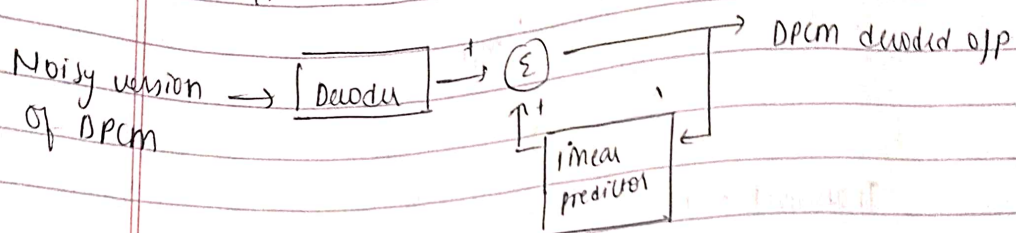 Noisy version
of DPCM
Decoder
+
Σ
DPCM decoded o/p
+
linear
predictor